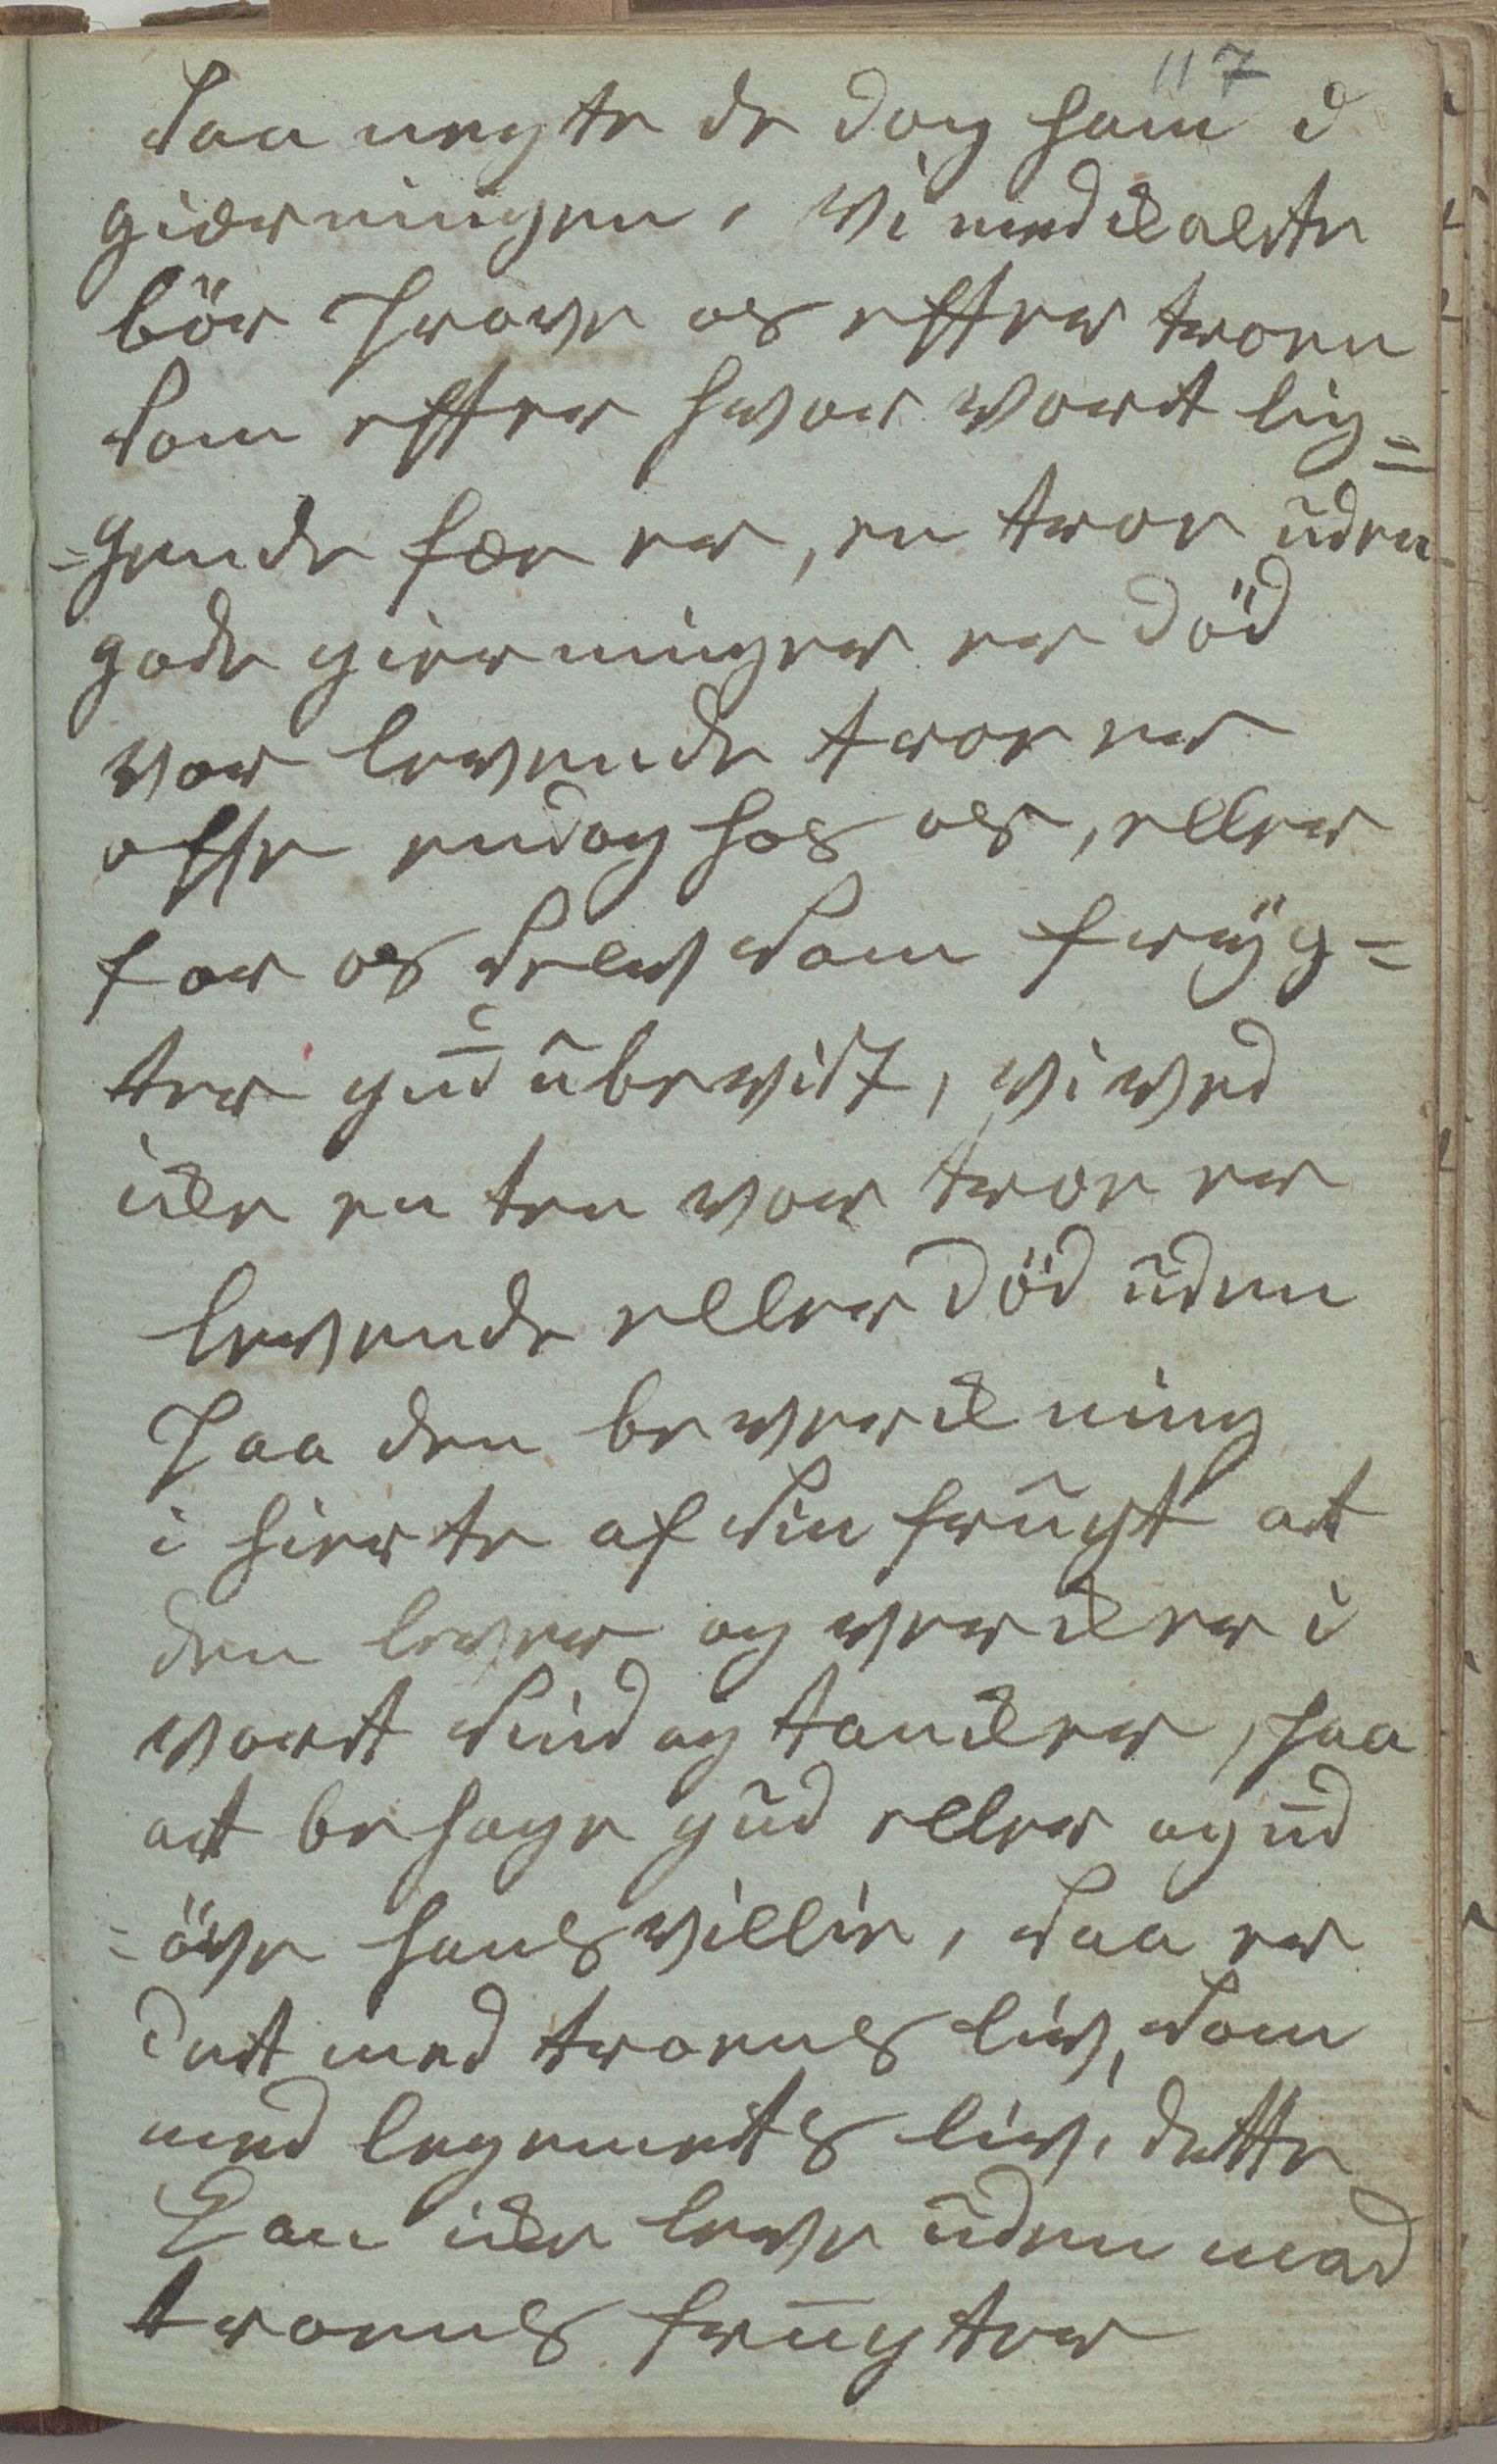 117
saa negte de dog ham i
gierningen, Vi med skalste
bör Prove os efter troen
som efter hvor vort lig=
=gende fæe er, en troe uden
gode gierninger er död
vor levende troe er
offte endog hos os, eller
for os Selv som fryg=
ter gud ubevist, vi ved
icke en ten vor troe er
levende eller död uden
Paa den beverckning
i hierte af sin frugt at
den lever og vercker i
vort sind og tancker, Paa
at behage gud eller og ud
=öve hans villie, saa er
det med troens liv, som
med legemets liv, dette
Kan icke leve uden mad
troens frugter